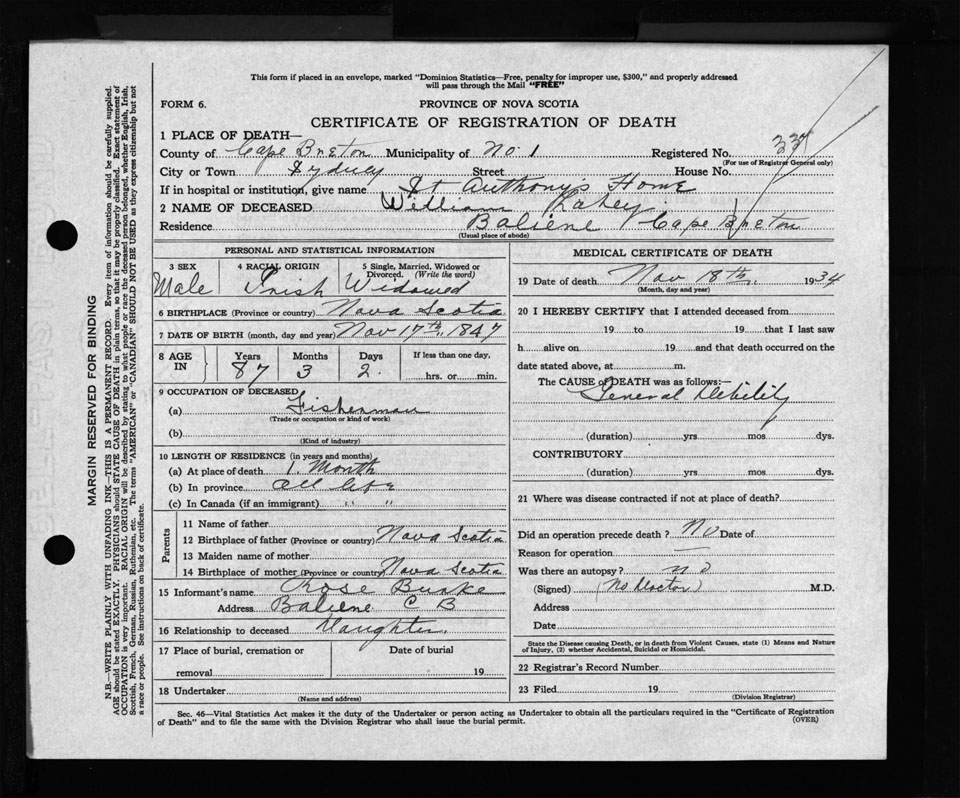 This form if placed in an envelope, marked "Dominion Statistics—Free, penalty for improper use, $300," and properly addressed
will pass through the Mail "FREE"
FORM 6. PROVINCE OF NOVA SCOTIA
CERTIFICATE OF REGISTRATION OF DEATH
1 PLACE OF DEATH—
County of Cape Breton Municipality of No. 1 Registered No. 337
(For use of Registrar General only)
City or Town Sydney Street House No.
If in hospital or institution, give name St Anthony's Home
2 NAME OF DECEASED William
Residence Baliene Cape Breton
(Usual place of abode)
PERSONAL AND STATISTICAL INFORMATION
3 SEX 4 RACIAL ORIGIN 5 Single, Married, Widowed or Divorced. (Write the word)
Male Irish Widowed
6 BIRTHPLACE (Province or country) Nova Scotia
7 DATE OF BIRTH (month, day and year) Nov 17th, 1847
8 AGE IN Years Months Days If less than one day,
87 3 2. hrs. or min.
9 OCCUPATION OF DECEASED
(a) Fisherman
(Trade or occupation or kind of work)
(b)
(Kind of industry)
10 LENGTH OF RESIDENCE (in years and months)
(a) At place of death 1. Month
(b) In province all life
(c) In Canada (if an immigrant) " "
Parents
11 Name of father
12 Birthplace of father (Province or country) Nova Scotia
13 Maiden name of mother
14 Birthplace of mother (Province or country) Nova Scotia
15 Informant's name Rose Burke
Address Baliene C B
16 Relationship to deceased Daughter.
17 Place of burial, cremation or Date of burial
removal 19
18 Undertaker
(Name and address)
MEDICAL CERTIFICATE OF DEATH
19 Date of death Nov 18th, 1934
(Month, day and year)
20 I HEREBY CERTIFY that I attended deceased from
19 to 19 that I last saw
h alive on 19 and that death occurred on the
date stated above, at m.
The CAUSE of DEATH was as follows:—
General Debility
(duration) yrs mos dys.
CONTRIBUTORY
(duration) yrs. mos. dys.
21 Where was disease contracted if not at place of death?
Did an operation precede death? No Date of
Reason for operation —
Was there an autopsy? no
(Signed) (No Doctor) M.D.
Address
Date
State the Disease causing Death, or in death from Violent Causes, state (1) Means and Nature
of Injury, (2) whether Accidental, Suicidal or Homicidal.
22 Registrar's Record Number
23 Filed 19
(Division Registrar)
Sec. 46—Vital Statistics Act makes it the duty of the Undertaker or person acting as Undertaker to obtain all the particulars required in the "Certificate of Registration
of Death" and to file the same with the Division Registrar who shall issue the burial permit. (OVER)
MARGIN RESERVED FOR BINDING
N.B.—WRITE PLAINLY WITH UNFADING INK—THIS IS A PERMANENT RECORD. Every item of information should be carefully supplied.
AGE should be stated EXACTLY. PHYSICIANS should STATE CAUSE OF DEATH in plain terms, so that it may be properly classified. Exact statement of
OCCUPATION is very important. RACIAL ORIGIN will be described by stating to what people or race the deceased person belonged, whether English, Irish,
Scottish, French, German, Russian, Ruthenian, etc. The terms "AMERICAN" or "CANADIAN" SHOULD NOT BE USED as they express citizenship but not
a race or people. See instructions on back of certificate.